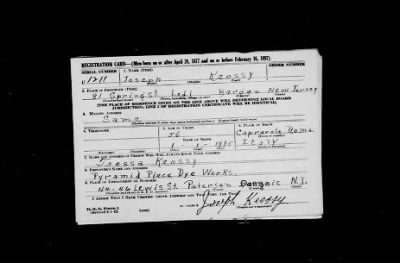 REGISTRATION CARD—(Men born on or after April 28, 1877 and on or before February 16, 1897)
SERIAL NUMBER 1. NAME (Print) ORDER NUMBER
U 1211 Joseph Keossy
2. PLACE OF RESIDENCE (Print)
81 Spring St Lodi Bergen New Jersey
[THE PLACE OF RESIDENCE GIVEN ON THE LINE ABOVE WILL DETERMINE LOCAL BOARD
JURISDICTION; LINE 2 OF REGISTRATION CERTIFICATE WILL BE IDENTICAL]
3. MAILING ADDRESS
Same
4. TELEPHONE 5. AGE IN YEARS 6. PLACE OF BIRTH
56 Caprarola Roma
DATE OF BIRTH
1 - 1 - 1885 Italy
7. NAME AND ADDRESS OF PERSON WHO WILL ALWAYS KNOW YOUR ADDRESS
Keossy
8. EMPLOYER'S NAME AND ADDRESS
Pyramid Piece Dye Works
9. PLACE OF EMPLOYMENT OR BUSINESS
44-46 Lewis St. Paterson N.J.
I AFFIRM THAT I HAVE VERIFIED ABOVE ANSWERS AND THAT THEY ARE TRUE.
Joseph Keossy